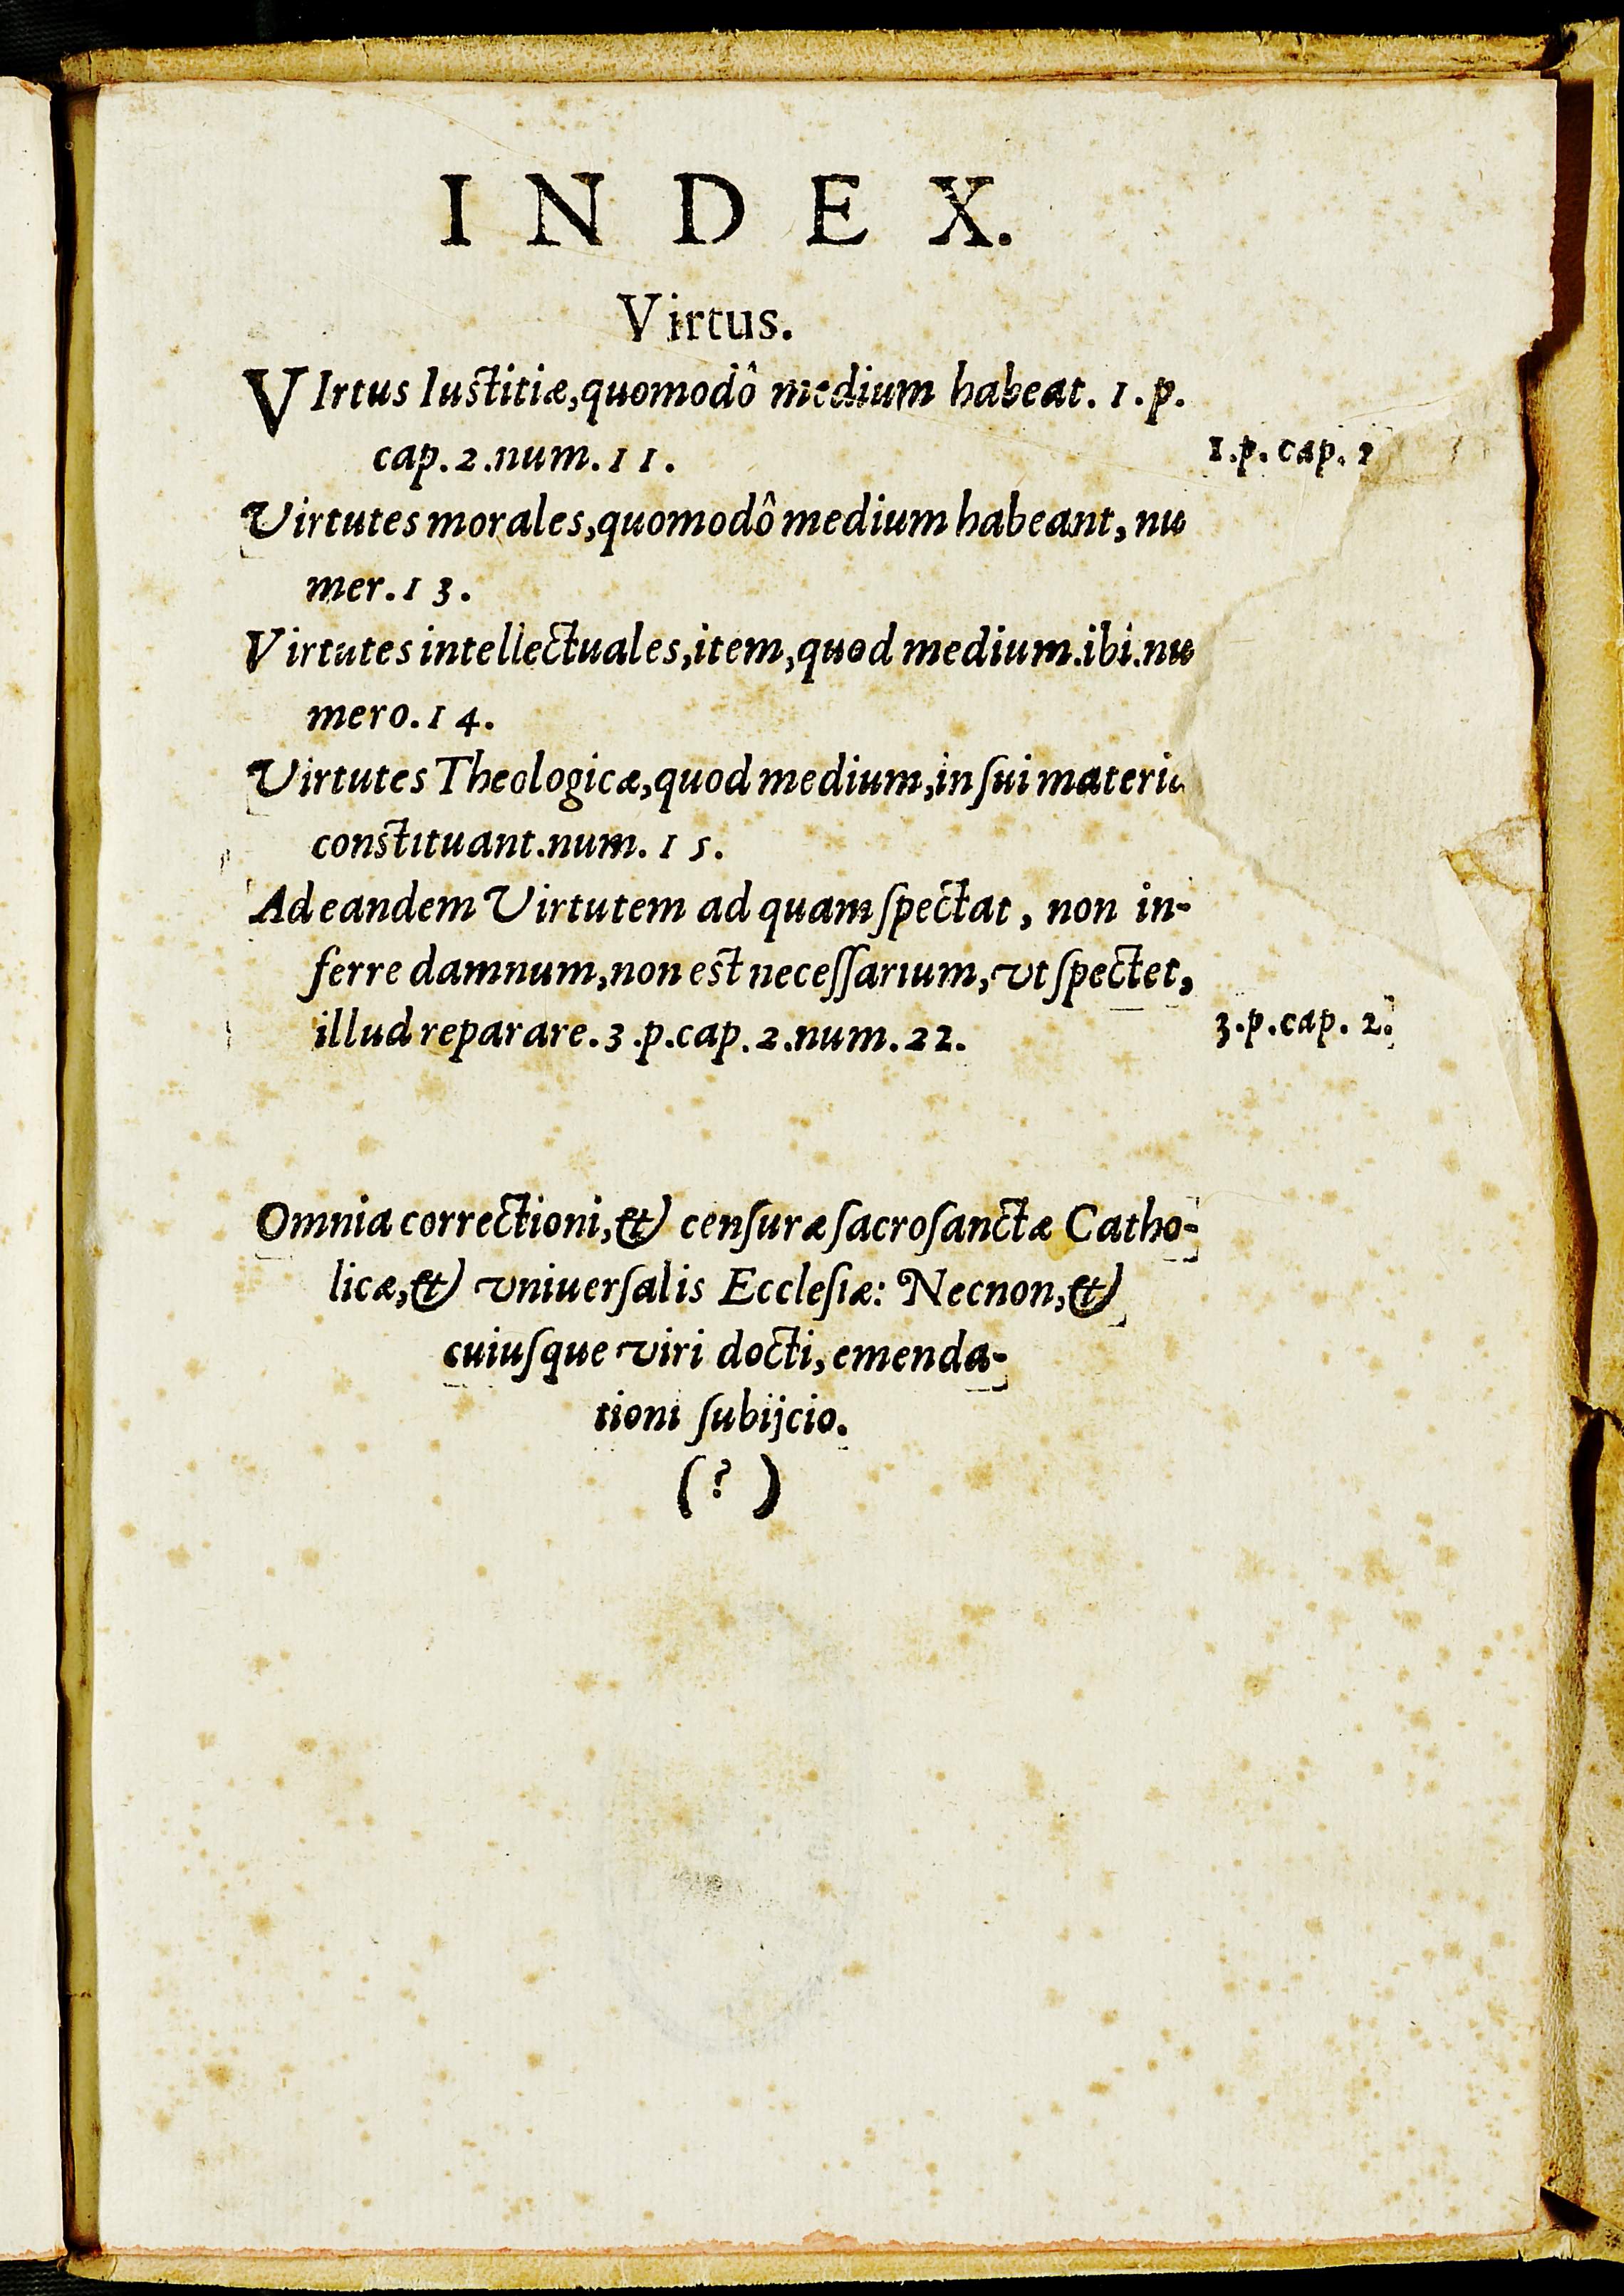 INDEX.
Virtus.
VIrtus Iustitiæ, quomodô medium habeat. 1.p.
cap. 2. num. 11.
1.p. cap. 2
Virtutes morales, quomodô medium habeant, nu
mer. 13.
Virtutes intellectuales, item, quod medium. ibi. nu
mero. 14.
Virtutes Theologicæ, quod medium, in ſui materia
constituant. num. 15.
Ad eandem Virtutem ad quam ſpectat, non in-
ferre damnum, non est neceſſarium, vt ſpectet,
illud reparare. 3.p. cap. 2. num. 22.
3.p. cap. 2.
Omnia correctioni, & cenſuræ ſacroſanctæ Catho-
licæ, & vniuerſalis Eccleſiæ: Necnon, &
cuiuſque viri docti, emenda-
tioni ſubijcio.
(?)